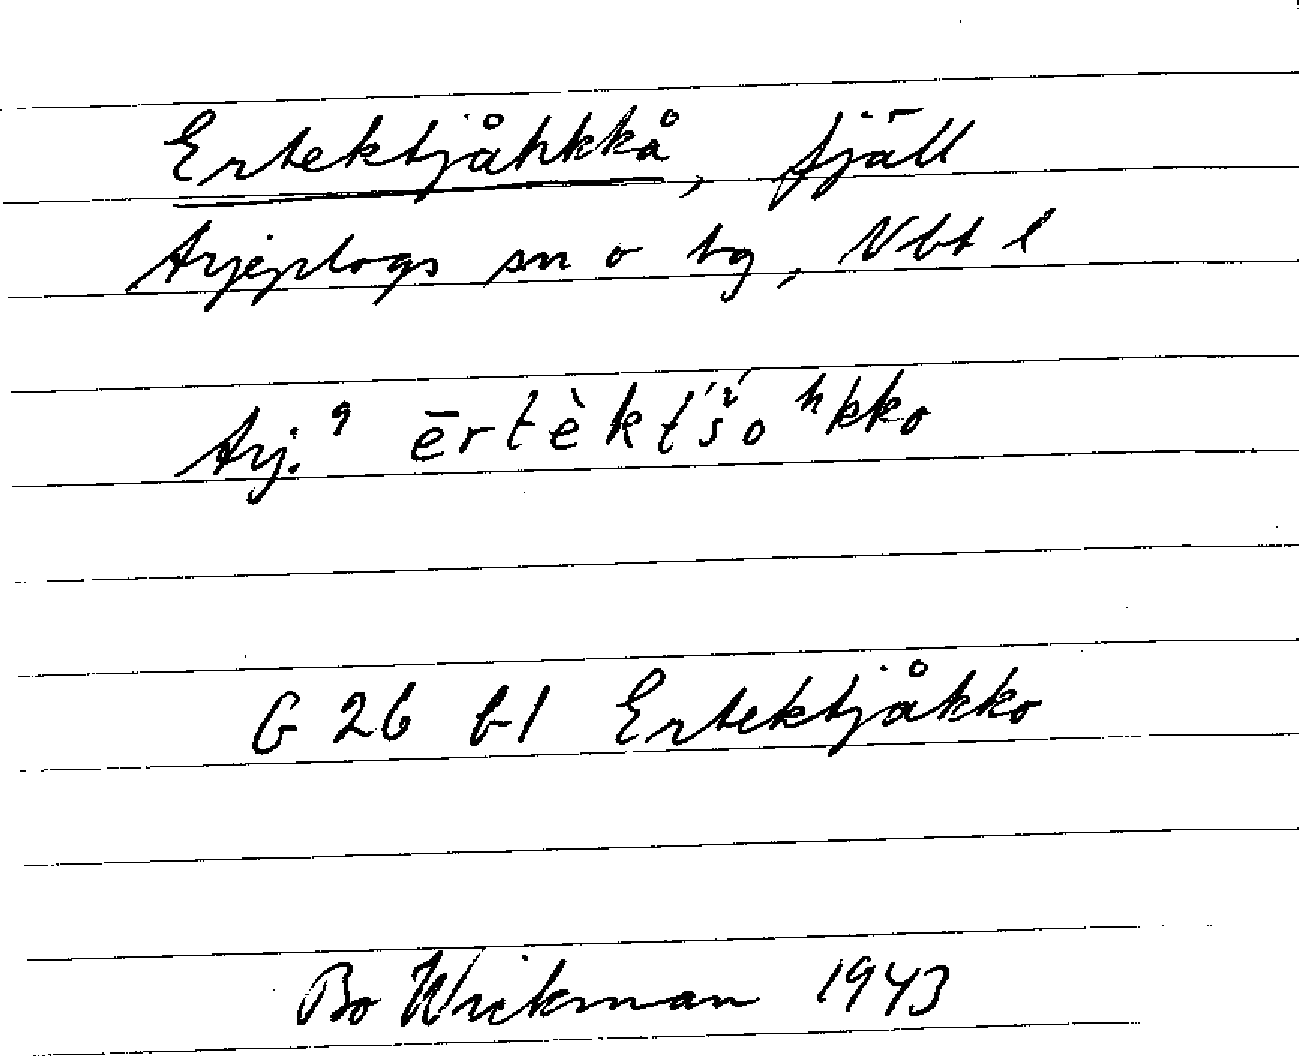 Ertektjåhkkå, fjäll
Arjeplogs sn o tg, Nbt l
Arj. 9 ērtèkt́š́oʰkko
G 26 b1 Ertektjåkko
Bo Wickman 1943